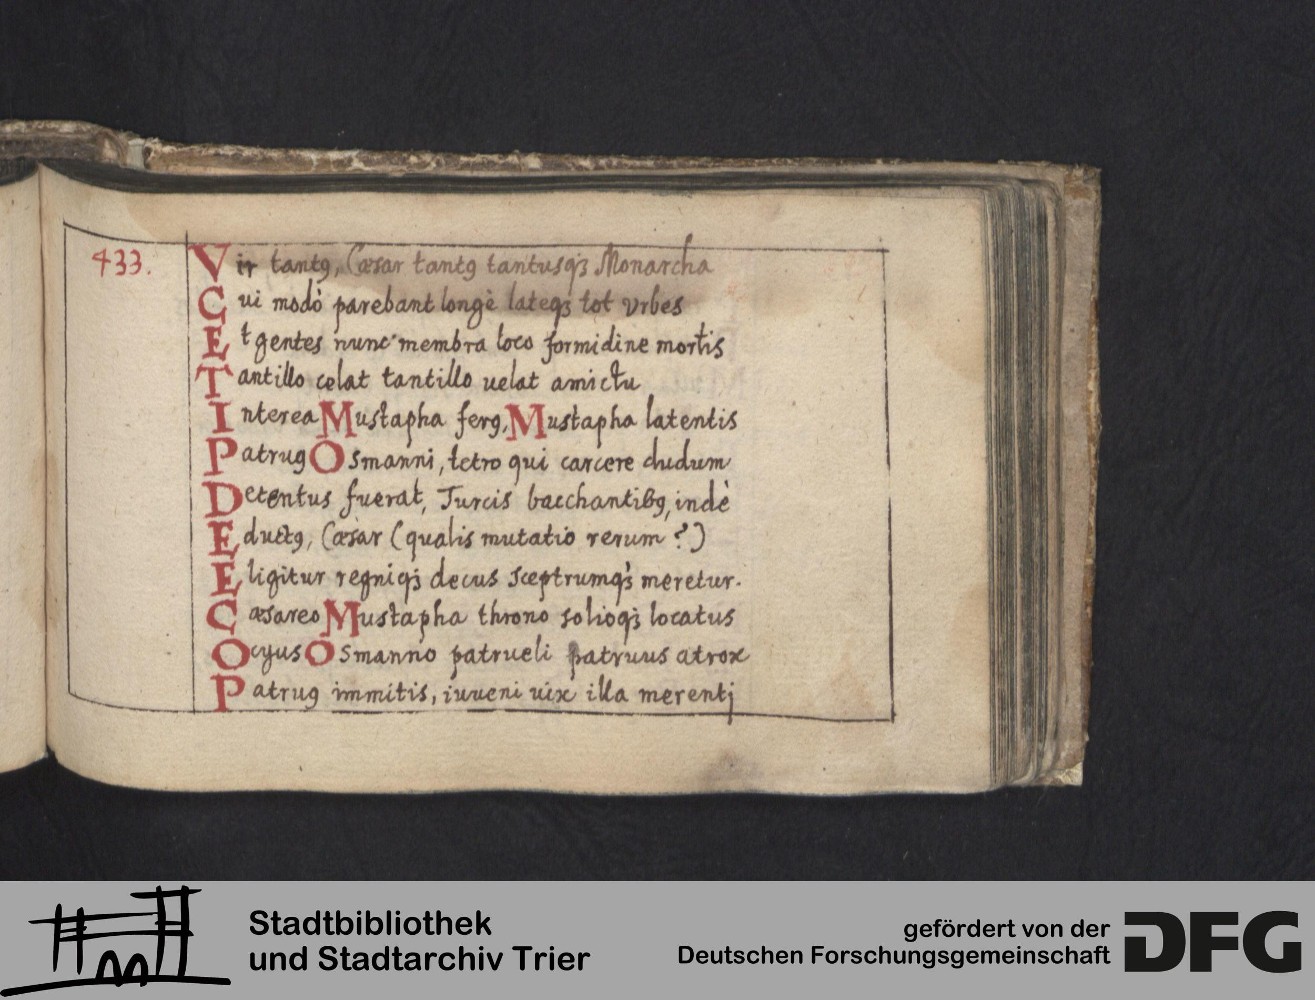 433.
Vir tantꝰ, Cæsar tantꝰ tantusqꝫ Monarcha
Cui modò parebant longè lateqꝫ tot vrbes
Et gentes nunc membra loco formidine mortis
Tantillo celat tantillo uelat amictu
Interea Mustapha ferꝰ, Mustapha latentis
Patruꝰ Osmanni, tetro qui carcere dudum
Detentus fuerat, Turcis bacchantibꝰ, indè
Eductꝰ, Cæsar (qualis mutatio rerum?)
Eligitur regniqꝫ decus sceptrumqꝫ meretur.
Cæsareo Mustapha throno solioqꝫ locatus
Ocyus Osmanno patrueli patruus atrox
Patruꝰ immitis, iuueni uix illa merentj
Stadtbibliothek
und Stadtarchiv Trier
gefördert von der
Deutschen Forschungsgemeinschaft
DFG